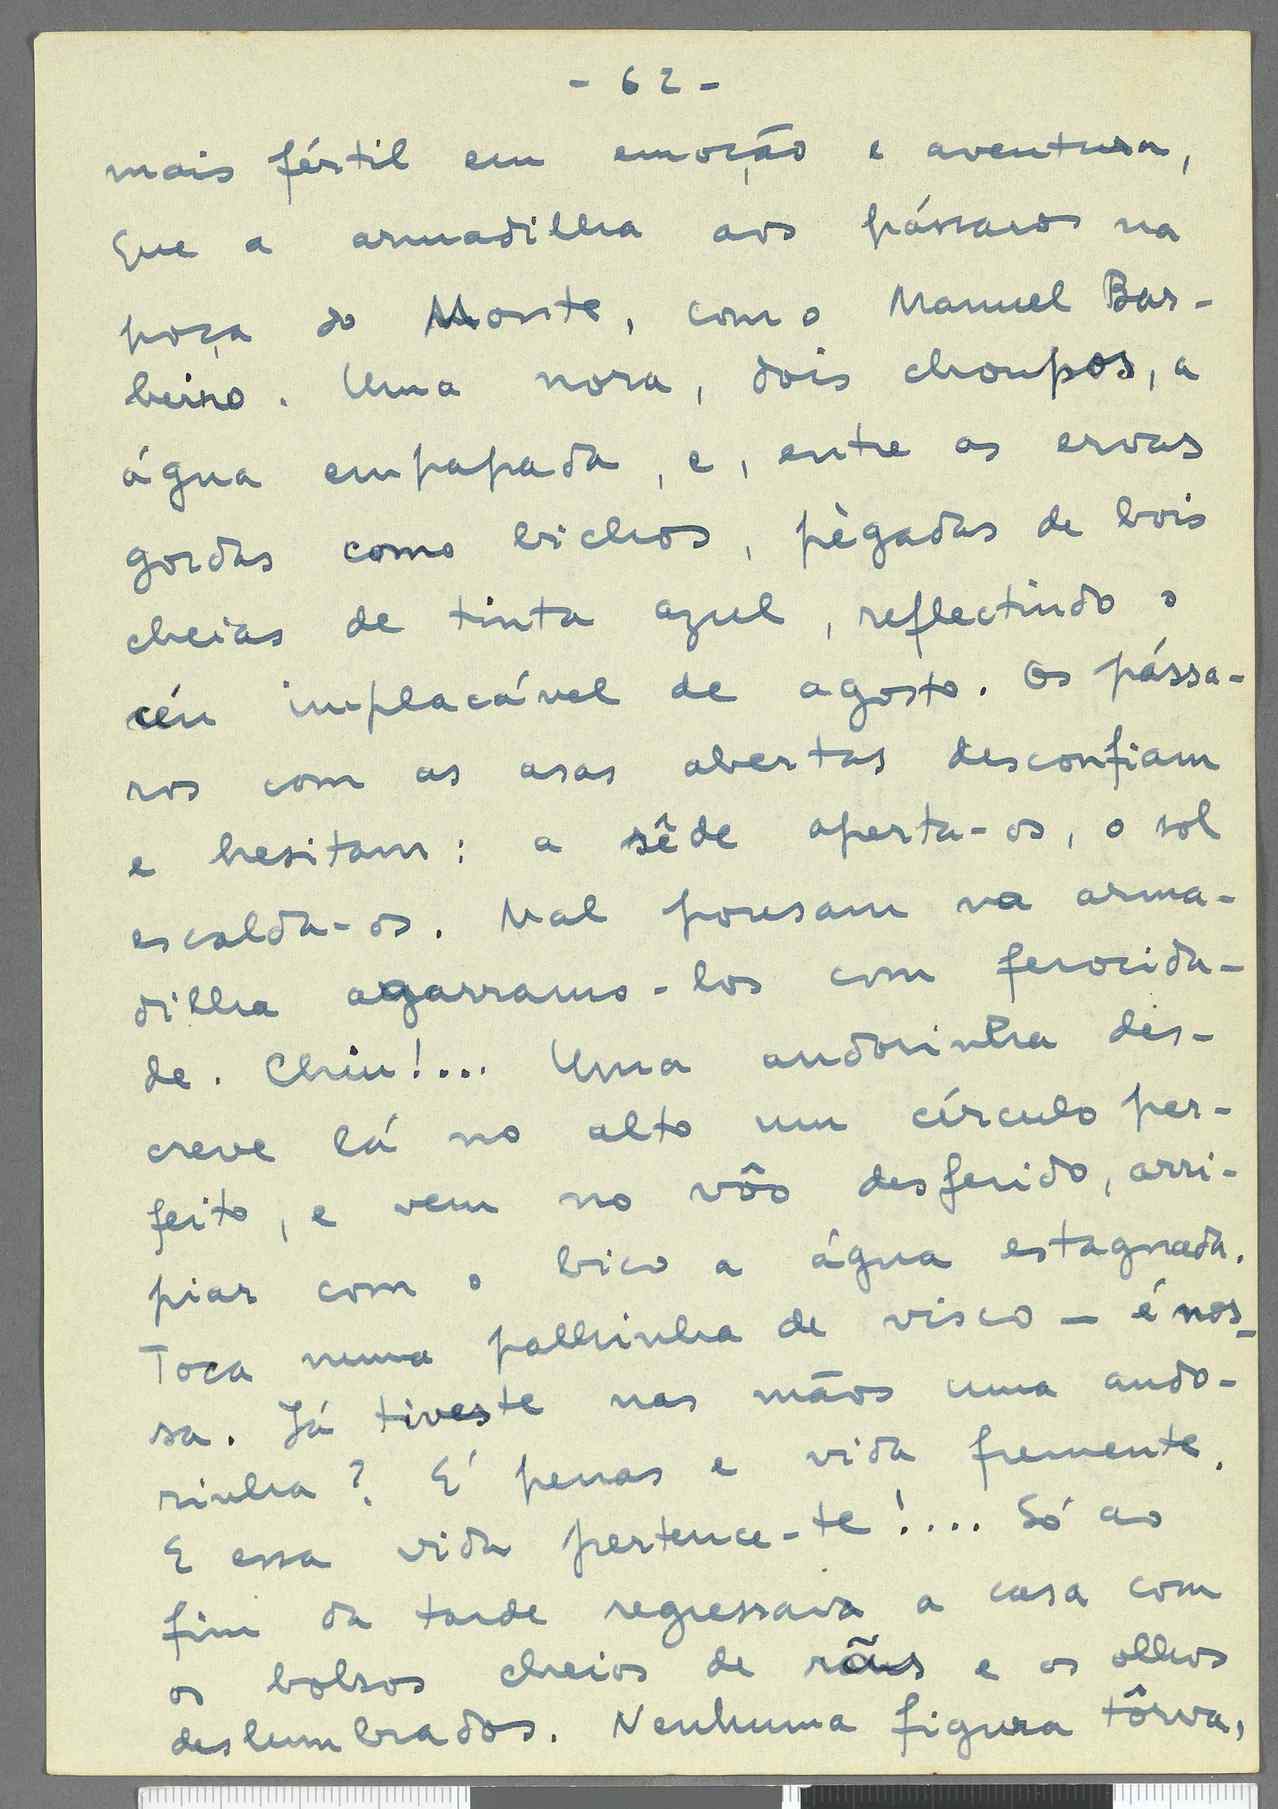 - 62 -
mais fértil em emoção e aventura,
que a armadilha aos pássaros na
poça do Monte, com o Manuel Bar-
beiro. Uma nora, dois choupos, a
água empapada, e, entre as ervas
gordas como bichos, pègadas de bois
cheias de tinta azul, reflectindo o
céu implacável de agosto. Os pássa-
ros com as asas abertas desconfiam
e hesitam: a sêde aperta-os, o sol
escalda-os. Mal pousam na arma-
dilha agarramo-los com ferocida-
de. Chiu!... Uma andorinha des-
creve lá no alto um círculo per-
feito, e vem no vôo desferido, arri-
piar com o bico a água estagnada.
Toca numa palhinha de visco — é nos-
sa. Já tiveste nas mãos uma ando-
rinha? É penas e vida fremente.
E essa vida pertence-te!.... Só ao
fim da tarde regressava a casa com
os bolsos cheios de rãs e os olhos
deslumbrados. Nenhuma figura tôrva,